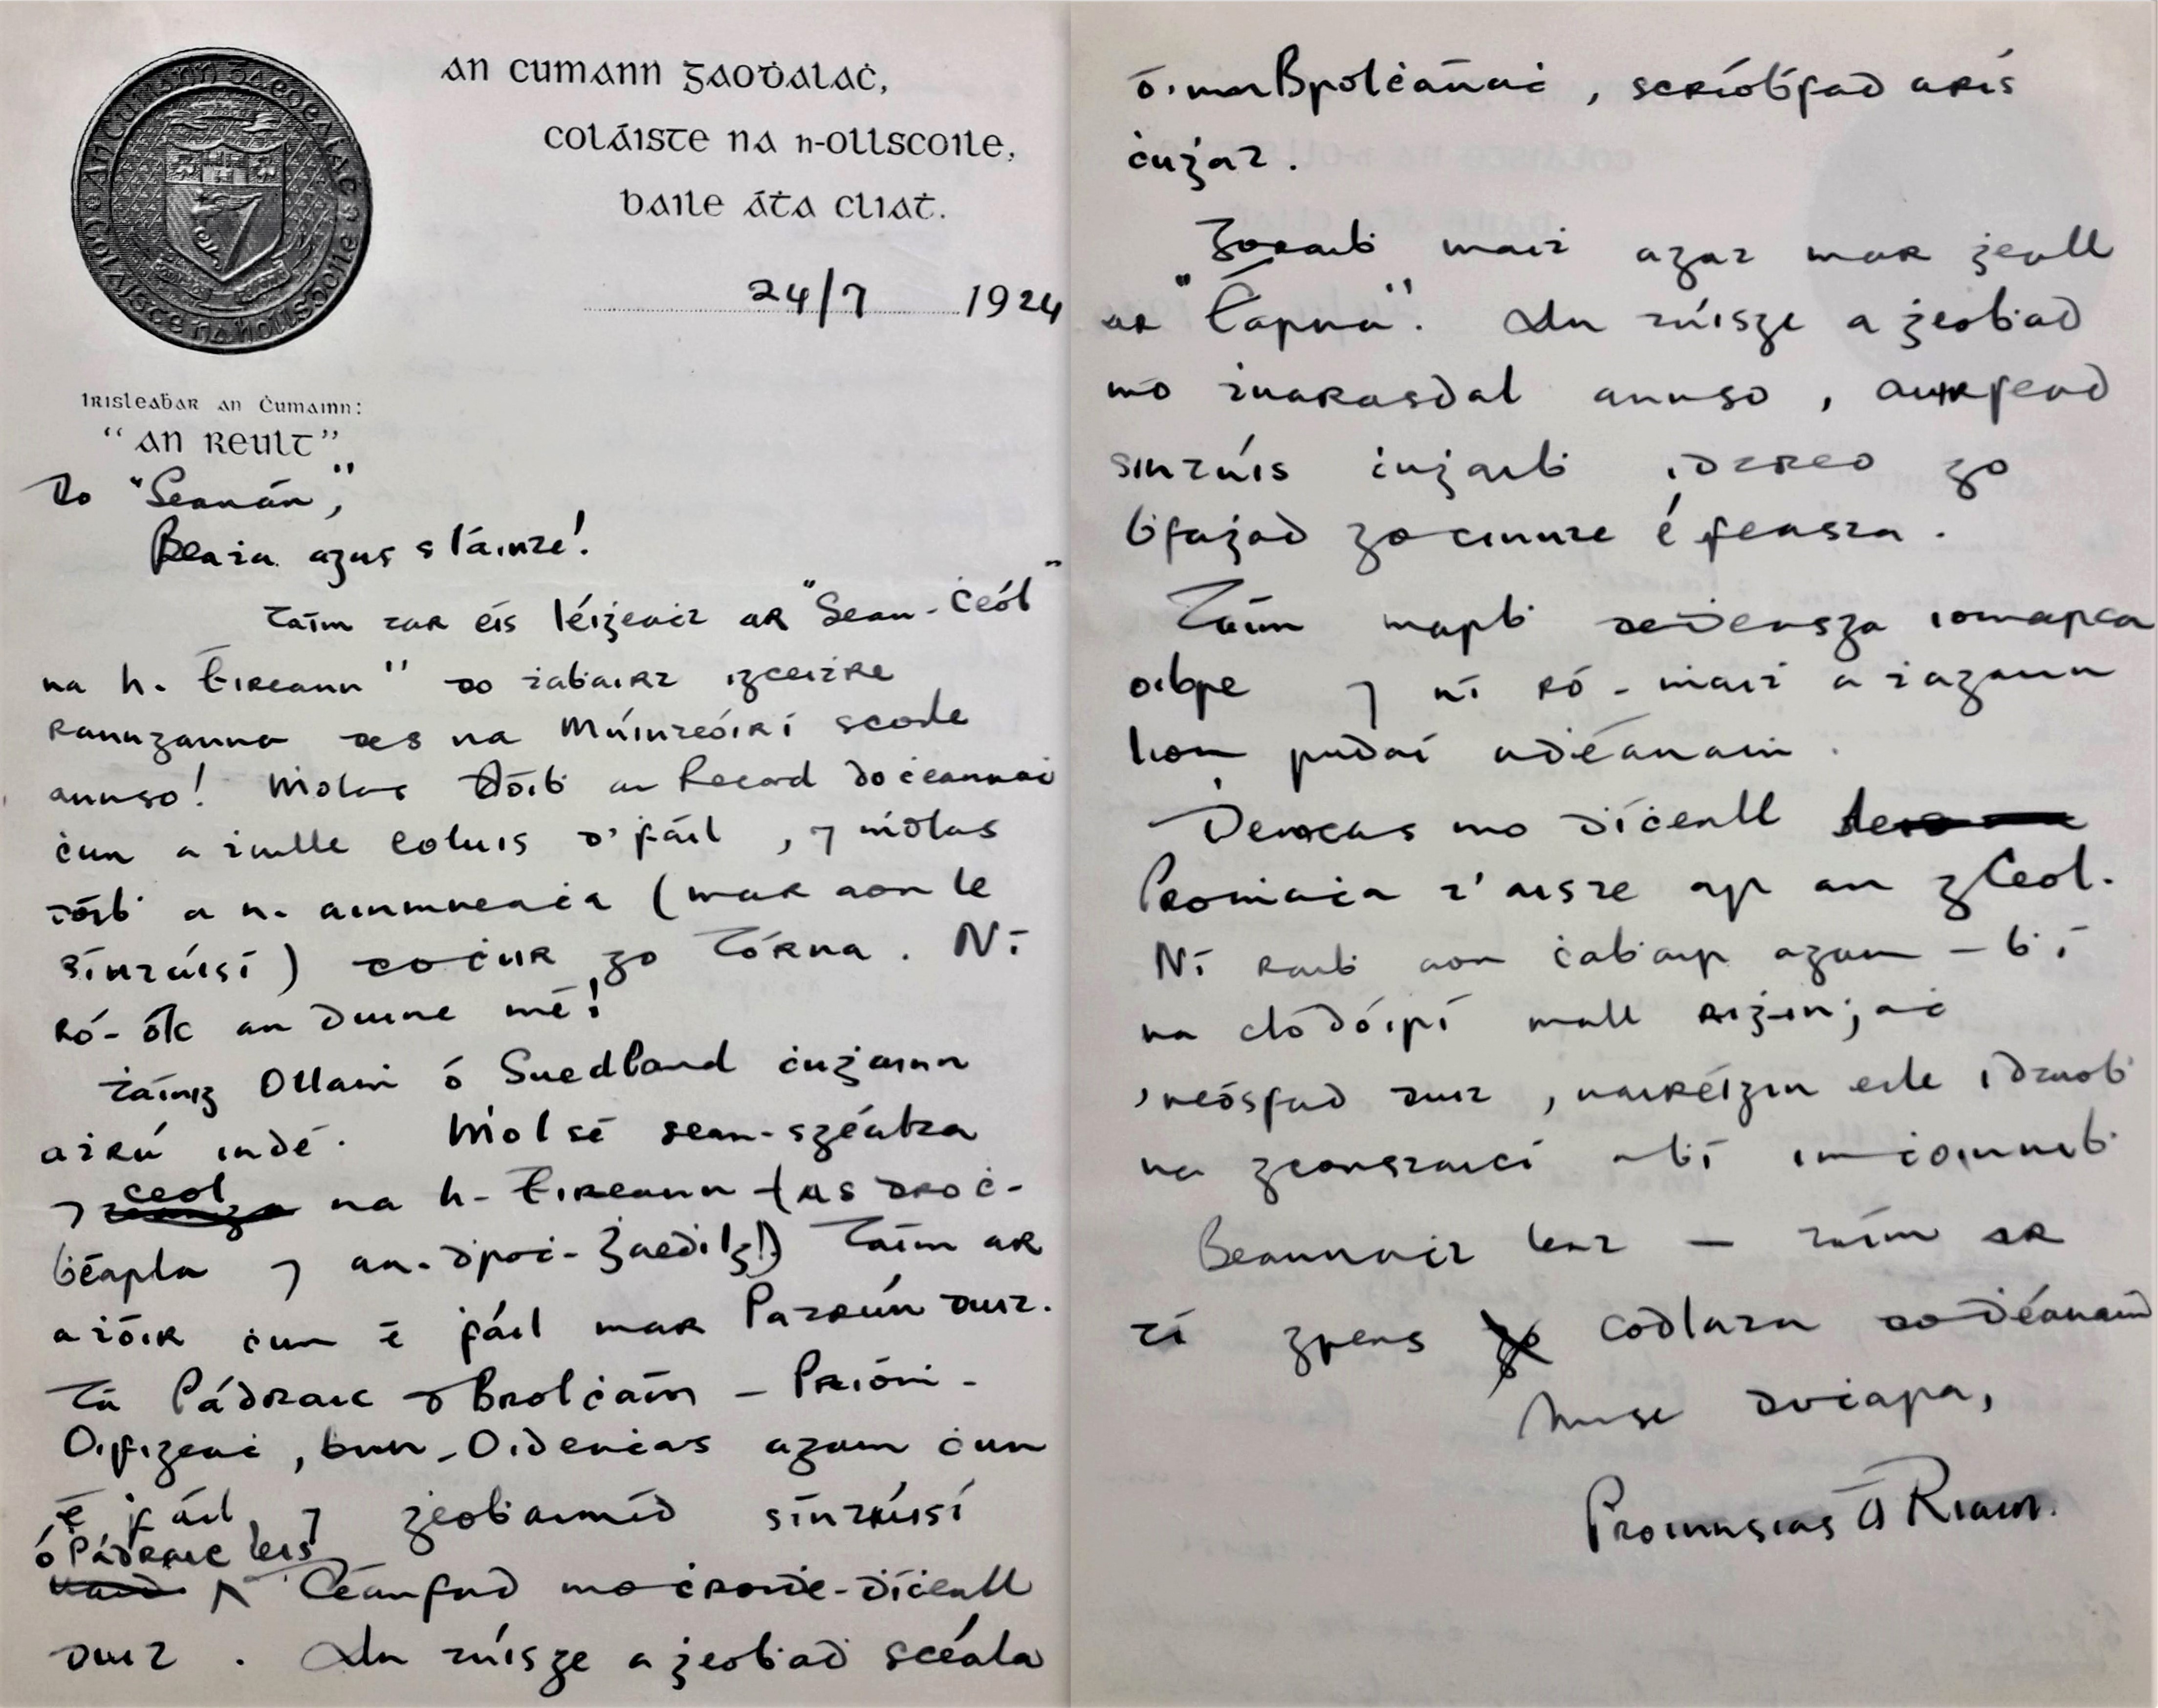 An Cumann Gaoḋalaċ,
Coláiste na n-Ollscoile,
Baile Áṫa Cliaṫ.
24/7 1924
Irisleaḃar an Ċumainn:
"An Reult"
Do "Seanán",
Beaṫa agus sláinte!
Táim tar éis léiġeaċt ar "Sean-Ċeól
na h-Éireann" do ṫaḃairt i gceiṫre
ranganna des na Múinteóirí scoile
annso! Molas dóiḃ an Record do ċeannaċ
ċun a ṫuille eoluis d'fáil, ⁊ ṁolas
dóiḃ a n-ainmneaċa (mar aon le
síntúisí) do ċur go Tórna. Ní
ró-olc an duine mé!
Táinig Ollaṁ ó Suedland ċuġainn
aṫrú indé. Ṁol sé sean-sgéalta
⁊ ceol na h-Éireann (as droċ-
ḃéarla ⁊ an-droċ-Ġaeḋilg!) Táim ar
a ṫóir ċun é ḟáil mar Patrún duit.
Tá Pádraic Ó Brolċáin – Príoṁ-
Oifigeaċ, bun-Oideaċas agam ċun
é ḟáil, ⁊ ġeoḃaimíd síntiúisí
ó Pádraic leis
Déanfad mo ċroiḋe-ḋíċeall
duit. An túisge a ġeoḃad scéala
ó'n mBrolċánaċ, scríoḃfad arís
ċuġat.
Go raiḃ maiṫ agat mar ġeall
ar "Éarna". An túisge a ġeoḃad
mo ṫuarasdal annso, cuirfead
sintúis ċuġaiḃ i dtreo go
ḃfaġad go cinnte é feasta.
Táim marḃ de ḋeasga iomarca
oibre ⁊ ní ró-ṁaiṫ a ṫagann
liom rudaí a ḋéanaṁ.
Ḋeineas mo ḋíċeall
Proinnċa t'aiste ar an gCeol.
Ní raiḃ aon ċaḃair agam – ḃí
na clódóirí mall riġin; aċ
'neósfad duit, uair éigin eile i dtaoḃ
na gconstaicí a ḃí im ċoinniḃ
Beannaċt leat – táim ar
tí greas codlata do ḋéanaṁ
Mise do ċara,
Proinnsias Ó Riain.